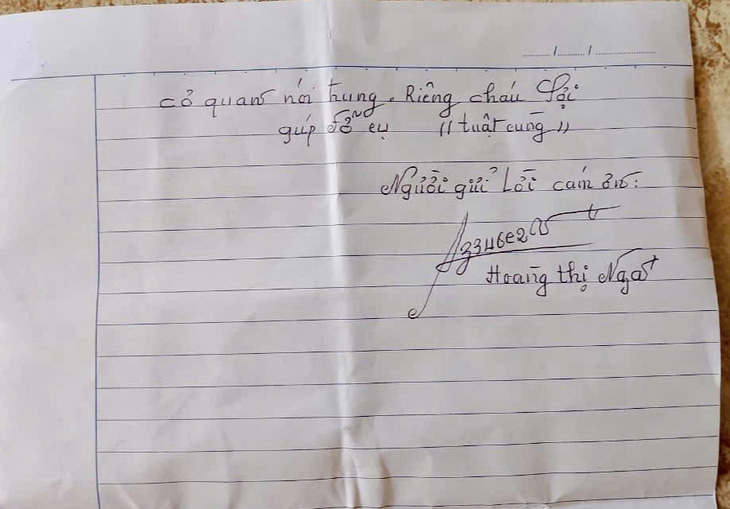 cơ quan nói trung. Riêng cháu Lợi
giúp đỡ cụ "tuật cung"
Người gửi Lời cảm ơn:
Hoàng thị Nga